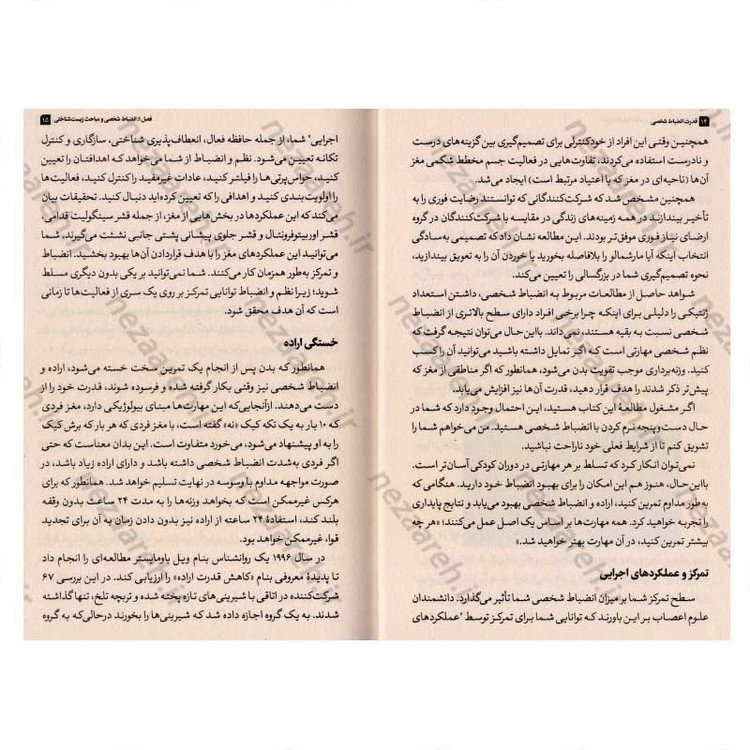 ۱۴ قدرت انضباط شخصی
همچنین وقتی این افراد از خودکنترلی برای تصمیم‌گیری بین گزینه‌های درست
و نادرست استفاده می‌کردند، تفاوت‌هایی در فعالیت جسم مخطط شکمی مغز
آن‌ها (ناحیه‌ای در مغز که با اعتیاد مرتبط است) ایجاد می‌شد.
همچنین مشخص شد که شرکت‌کنندگانی که توانستند رضایت فوری را به
تأخیر بیندازند در همه زمینه‌های زندگی در مقایسه با شرکت‌کنندگان در گروه
ارضای نیاز فوری موفق‌تر بودند. این مطالعه نشان داد که تصمیمی به‌سادگی
انتخاب اینکه آیا مارشمالو را بلافاصله بخورید یا خوردن آن را به تعویق بیندازید،
نحوه تصمیم‌گیری شما در بزرگسالی را تعیین می‌کند.
شواهد حاصل از مطالعات مربوط به انضباط شخصی، داشتن استعداد
ژنتیکی را دلیلی برای اینکه چرا برخی افراد دارای سطح بالاتری از انضباط
شخصی نسبت به بقیه هستند، نمی‌داند. بااین‌حال می‌توان نتیجه گرفت که
نظم شخصی مهارتی است که اگر تمایل داشته باشید می‌توانید آن را کسب
کنید. وزنه‌برداری موجب تقویت بدن می‌شود، همان‌طور که اگر مناطقی از مغز که
پیش‌تر ذکر شدند را هدف قرار دهید، قدرت آن‌ها نیز افزایش می‌یابد.
اگر مشغول مطالعهٔ این کتاب هستید، این احتمال وجود دارد که شما در
حال دست‌وپنجه نرم کردن با انضباط شخصی هستید. من می‌خواهم شما را
تشویق کنم تا از شرایط فعلی خود ناراحت نباشید.
نمی‌توان انکار کرد که تسلط بر هر مهارتی در دوران کودکی آسان‌تر است.
بااین‌حال، هنوز هم این امکان را برای بهبود انضباط خود دارید. هنگامی که
به‌طور مداوم تمرین کنید، اراده و انضباط شخصی بهبود می‌یابد و نتایج پایداری
را تجربه خواهید کرد. همه مهارت‌ها بر اساس یک اصل عمل می‌کنند؛ «هر چه
بیشتر تمرین کنید، در آن مهارت بهتر خواهید شد.»
تمرکز و عملکردهای اجرایی
سطح تمرکز شما بر میزان انضباط شخصی شما تأثیر می‌گذارد. دانشمندان
علوم اعصاب بر این باورند که توانایی شما برای تمرکز توسط "عملکردهای
فصل ۱: انضباط شخصی و مباحث زیست‌شناختی ۱۵
اجرایی" شما، از جمله حافظه فعال، انعطاف‌پذیری شناختی، سازگاری و کنترل
تکانه تعیین می‌شود. نظم و انضباط از شما می‌خواهد که اهدافتان را تعیین
کنید، حواس‌پرتی‌ها را فیلتر کنید، عادات غیرمفید را کنترل کنید، فعالیت‌ها
را اولویت‌بندی کنید و اهدافی را که تعیین کرده‌اید دنبال کنید. تحقیقات بیان
می‌کند که این عملکردها در بخش‌هایی از مغز، از جمله قشر سینگولیت قدامی،
قشر اوربیتوفرونتال و قشر جلوی پیشانی پشتی جانبی نشئت می‌گیرند. شما
می‌توانید این عملکردهای مغز را با هدف قراردادن آن‌ها بهبود بخشید. انضباط
و تمرکز به‌طور همزمان کار می‌کنند. شما نمی‌توانید بر یکی بدون دیگری مسلط
شوید؛ زیرا نظم و انضباط توانایی تمرکز بر روی یک سری از فعالیت‌ها تا زمانی
است که آن هدف محقق شود.
خستگی اراده
همانطور که بدن پس از انجام یک تمرین سخت خسته می‌شود، اراده و
انضباط شخصی نیز وقتی بکار گرفته شده و فرسوده شوند، قدرت خود را از
دست می‌دهند. ازآنجایی‌که این مهارت‌ها مبنای بیولوژیکی دارد، مغز فردی
که ۱۰ بار به یک تکه کیک «نه» گفته است، با مغز فردی که هر بار که برش کیک
را به او پیشنهاد می‌شود، می‌خورد متفاوت است. این بدان معناست که حتی
اگر فردی به‌شدت انضباط شخصی داشته باشد و دارای اراده زیاد باشد، در
صورت مواجهه مداوم با وسوسه در نهایت تسلیم خواهد شد. همانطور که برای
هرکس غیرممکن است که بخواهد وزنه‌ها را به مدت ۲۴ ساعت بدون وقفه
بلند کند، استفادهٔ ۲۴ ساعته از اراده نیز بدون دادن زمان به آن برای تجدید
قوا، غیرممکن خواهد بود.
در سال ۱۹۹۶ یک روانشناس بنام ویل باومایستر مطالعه‌ای را انجام داد
تا پدیدهٔ معروفی بنام «کاهش قدرت اراده» را ارزیابی کند. در این بررسی ۶۷
شرکت‌کننده در اتاقی با شیرینی‌های تازه پخته شده و تربچه تلخ، تنها گذاشته
شدند. به یک گروه اجازه داده شد که شیرینی‌ها را بخورند درحالی‌که به گروه
nezaareh.ir